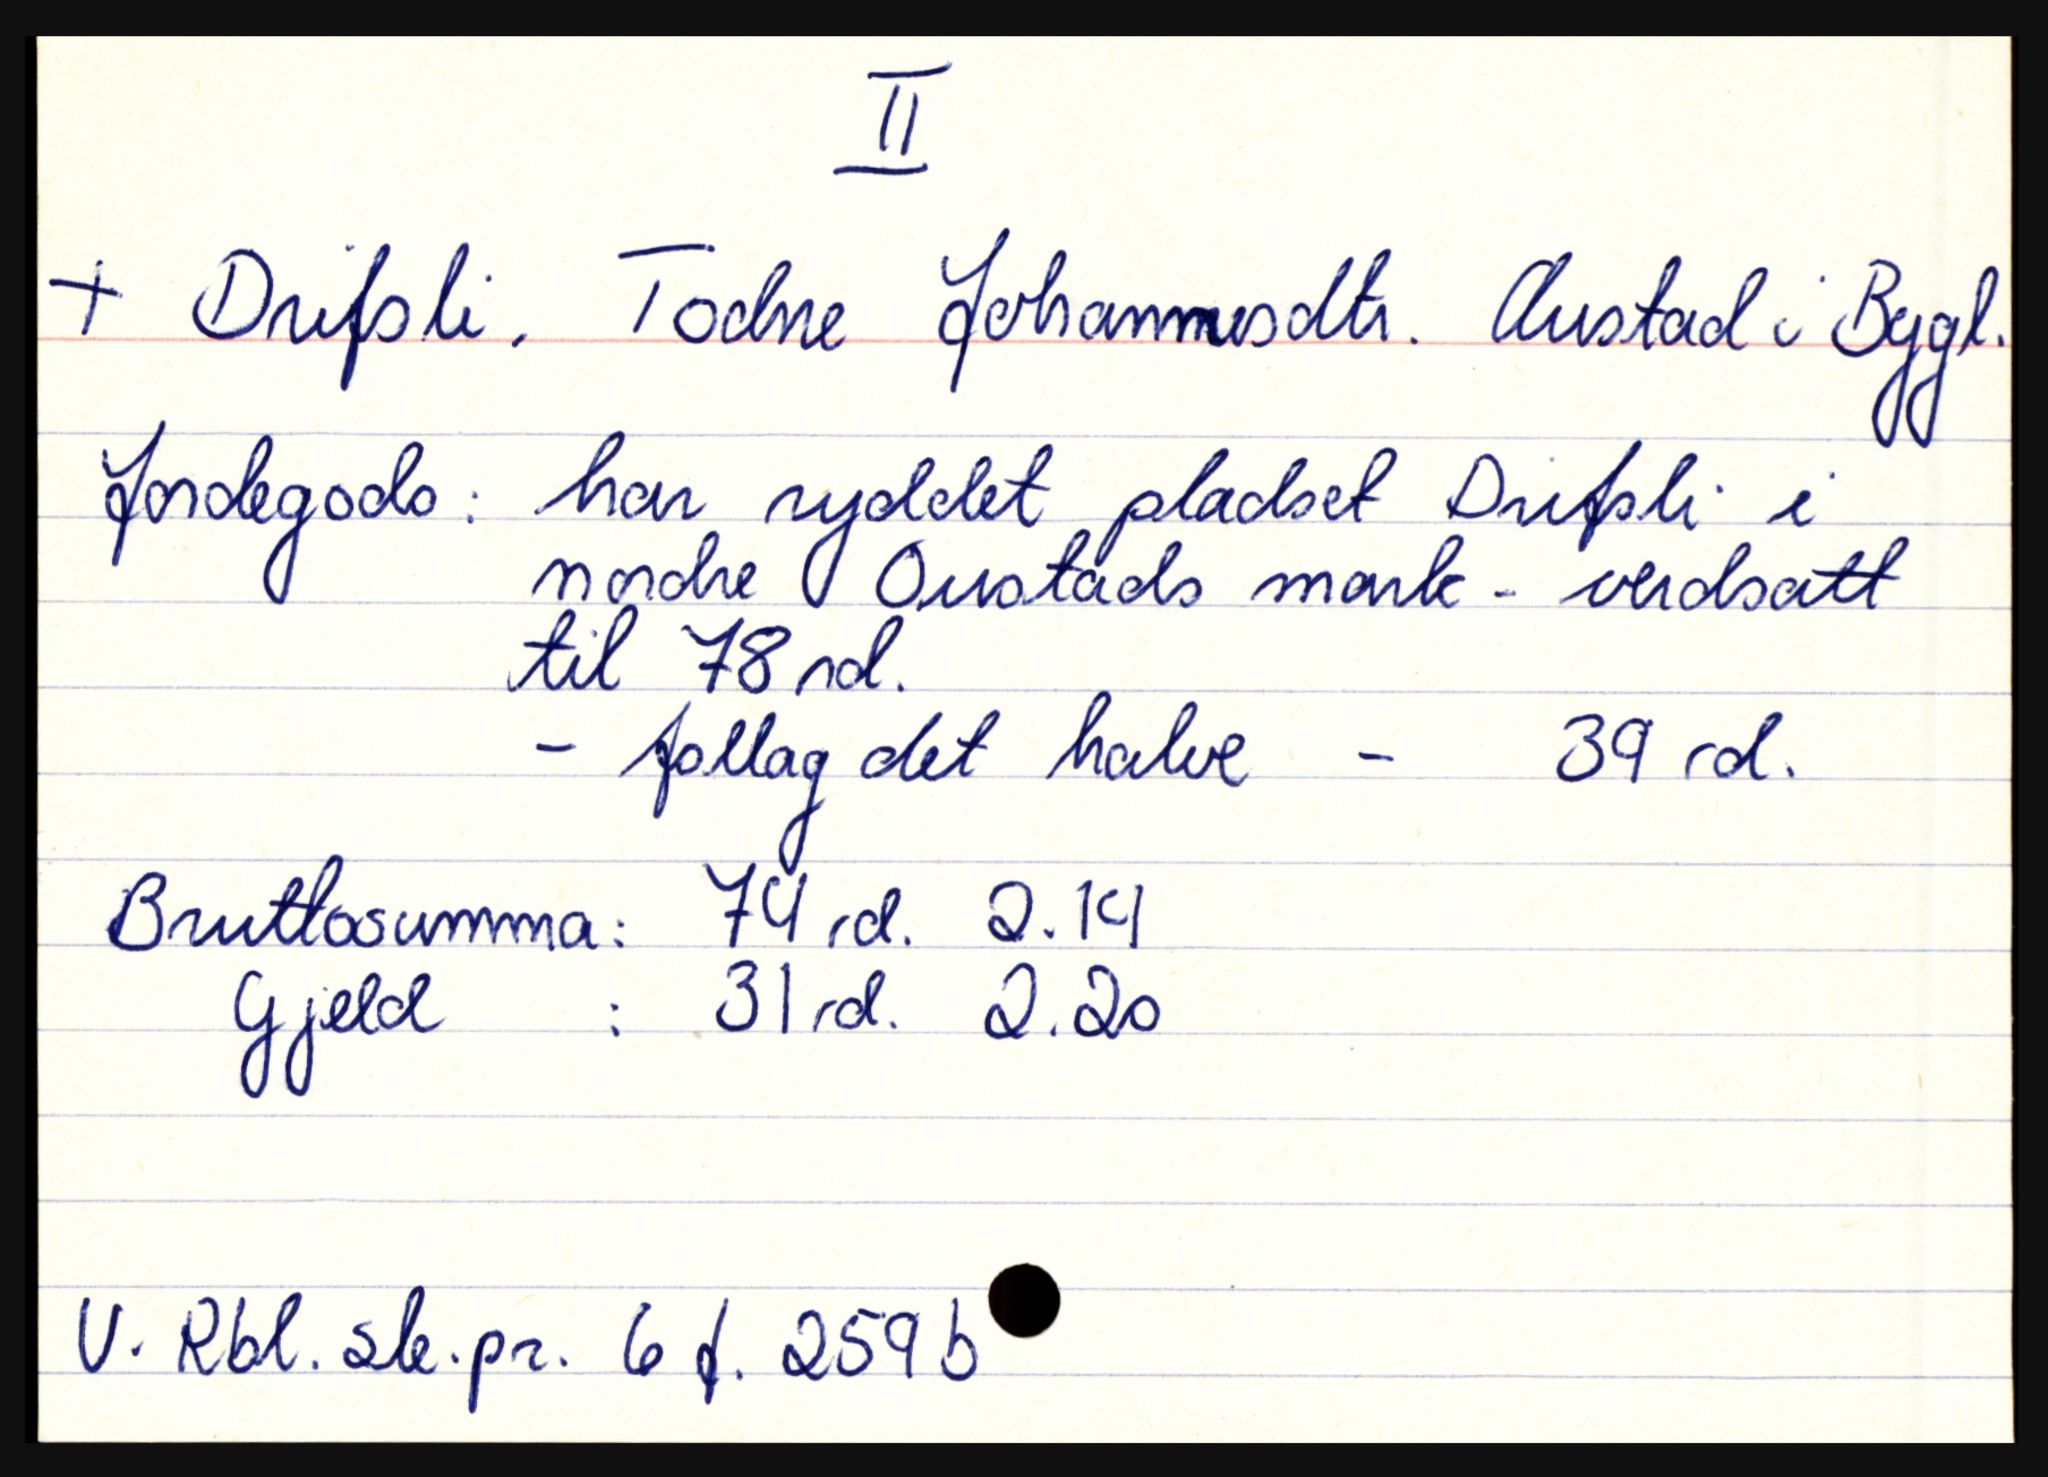 II
+ Drifsli. Todne Johannesdtr. Austad i Bygl.
Jordegods: har ryddet pladset Drifsli i
nordre Oustads mark - verdsatt
til 78 rd.
- follag det halve - 39 rd.
Bruttosumma: 74 rd. 2.14
Gjeld : 31 rd. 2.20
V. Rbl. sk.pr. 6 f. 259 b